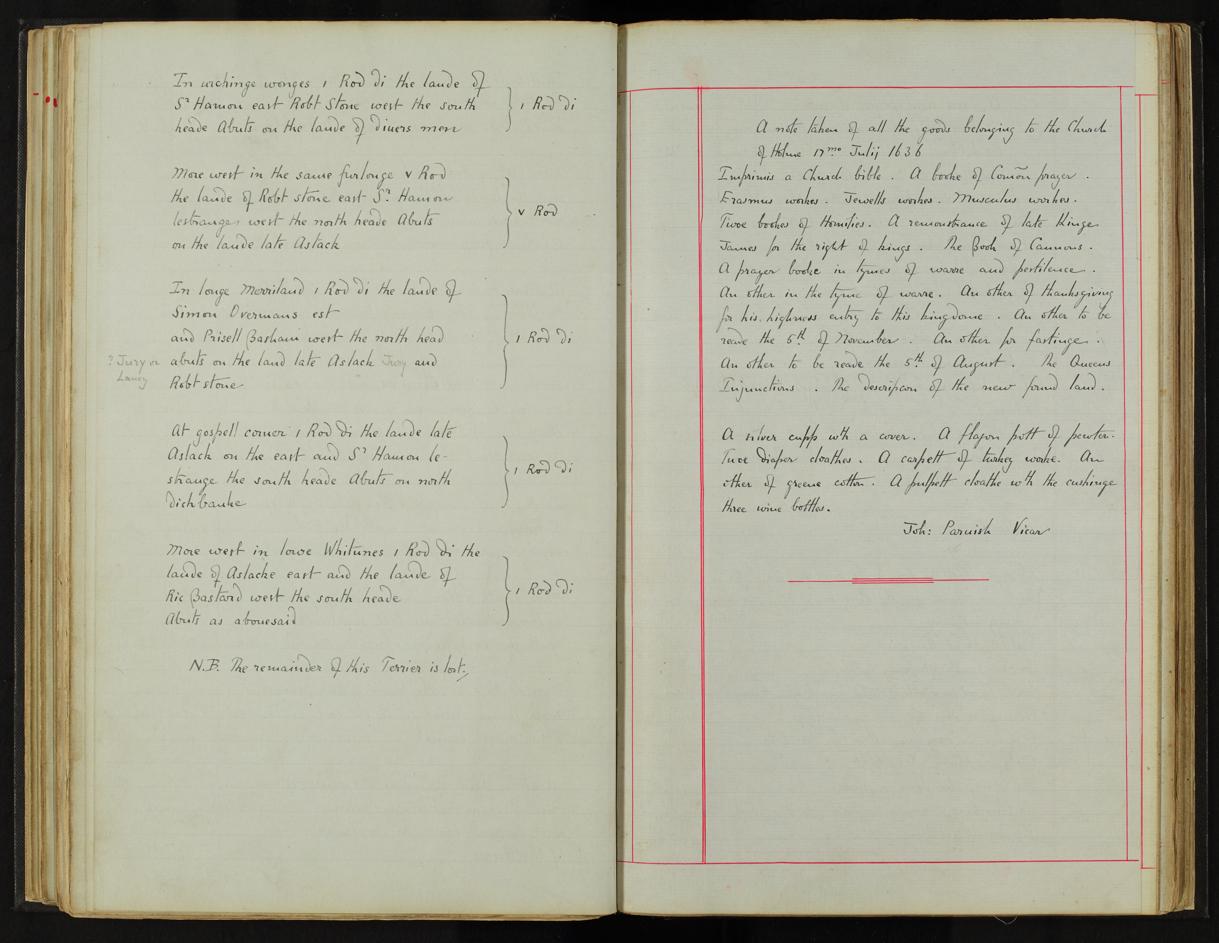 In wichinge wonges 1 Rod di the lande of
Sr Hamon east Robt Stone west the south
heade Abuts on the lande of diuers men
1 Rod di
More west in the same furlonge v Rod
the lande of Robt stone east Sr. Hamon
lestrange west the north heade Abuts
on the lande late Aslack
v Rod
In longe Morriland 1 Rod di the lande of
Simon Overmans est
and Prisell Basham west the north head
abuts on the land late Aslack Jury and
Robt stone
? Jury or
Laney
1 Rod di
At gospell corner 1 Rod di the lande late
Aslack on the east and Sr Hamon le-
strange the south heade Abuts on north
dichbanke
1 Rod di
More west in lowe Whitunes 1 Rod di the
lande of Aslacke east and the lande of
Ric Bastard west the south heade
Abuts as abouesaid
1 Rod di
N.B. The remainder of this Terrier is lost.
A note taken of all the goods belonging to the Church
of Holme 17mo Julij 1636
Imprimis a Church bible. A booke of Comõn prayer.
Erasmus workes. Jewells workes. Musculus workes.
Twoe bookes of Homilies. A remonstrance of late Kinge
James for the right of kings. The Book of Cannons.
A prayer booke in tymes of warre and pestilence.
An other in the tyme of warre. An other of thanksgiving
for his highness entry to this kingdome. An other to be
reade the 5th of November. An other for fastinge.
An other to be reade the 5th of August. The Queens
Injunctions. The descripcon of the new found land.
A silver cupp wth a cover. A flagon pott of pewter.
Twoe diaper cloathes. A carpett of turkey worke. An
other of greene cotton. A pulpett cloathe wth the cushinge
three wine bottles.
Joh: Parnish Vicar